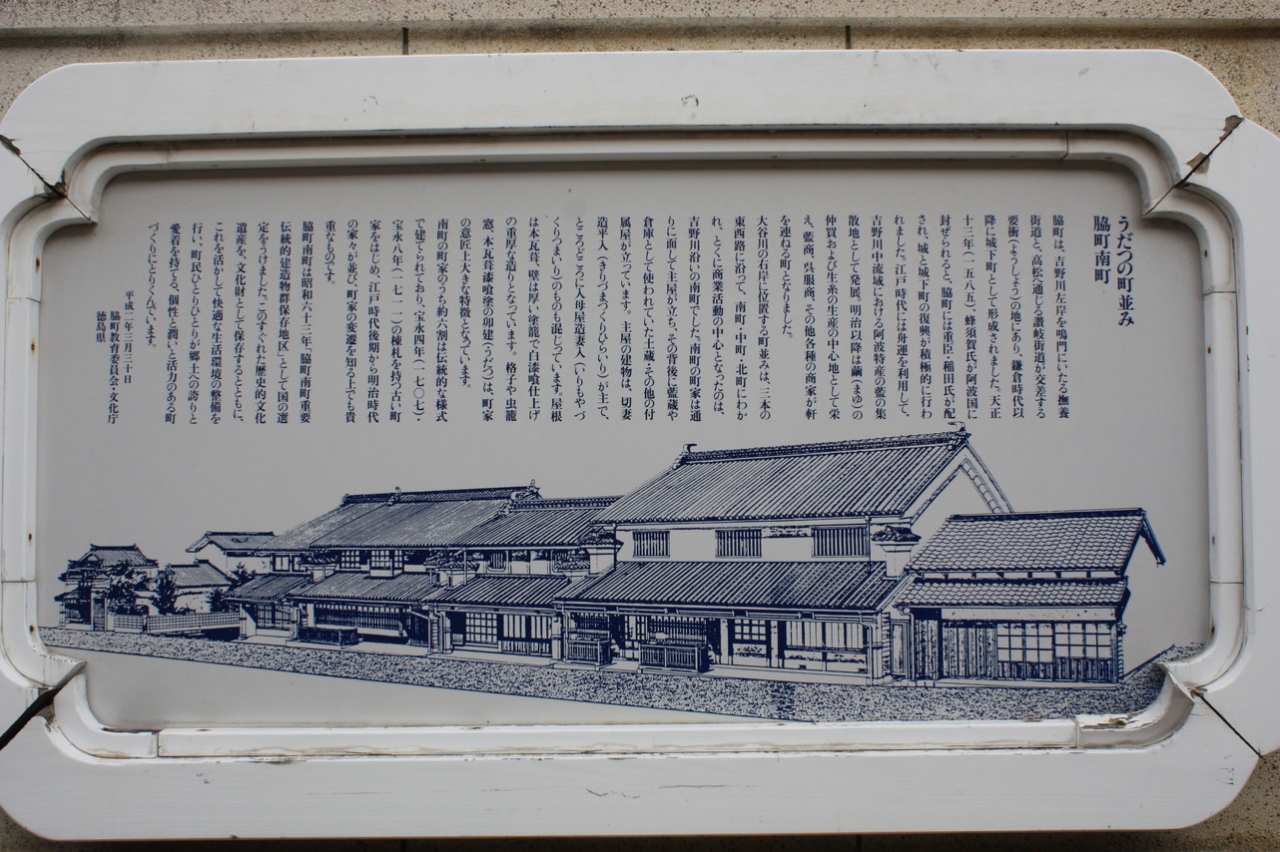 うだつの町並み
脇町南町
脇町は、吉野川左岸を鳴門にいたる撫養
街道と、高松へ通じる讃岐街道が交差する
要衝(ようしょう)の地にあり、鎌倉時代以
降に城下町として形成されました。天正
十三年(一五八五)、蜂須賀氏が阿波国に
封ぜられると、脇町には重臣・稲田氏が配
され、城と城下町の復興が積極的に行わ
れました。江戸時代には舟運を利用して、
吉野川中流域における阿波特産の藍の集
散地として発展。明治以降は繭(まゆ)の
仲買および生糸の生産の中心地として栄
え、藍商、呉服商、その他各種の商家が軒
を連ねる町となりました。
大谷川の右岸に位置する町並みは、三本の
東西路に沿って、南町・中町・北町にわか
れ、とくに商業活動の中心となったのは、
吉野川沿いの南町でした。南町の町家は通
りに面して主屋が立ち、その背後に藍蔵や
倉庫として使われていた土蔵・その他の付
属屋が立っています。主屋の建物は、切妻
造平入(きりづまづくりひらいり)が主で、
ところどころに入母屋造妻入(いりもやづ
くりつまいり)のものも混じっています。屋根
は本瓦葺、壁は厚い塗籠で白漆喰仕上げ
の重厚な造りとなっています。格子や虫籠
窓、本瓦葺漆喰塗の卯建(うだつ)は、町家
の意匠上大きな特徴となっています。
南町の町家のうち約六割は伝統的な様式
で建てられており、宝永四年(一七〇七)・
宝永八年(一七一一)の棟札を持つ古い町
家をはじめ、江戸時代後期から明治時代
の家々が並び、町家の変遷を知る上でも貴
重なものです。
脇町南町は昭和六十三年、「脇町南町重要
伝統的建造物群保存地区」として国の選
定をうけました。このすぐれた歴史的文化
遺産を、文化財として保存するとともに、
これを活かして快適な生活環境の整備を
行い、町民ひとりひとりが郷土への誇りと
愛着を持てる、個性と潤いと活力のある町
づくりにとりくんでいます。
平成二年三月三十日
脇町教育委員会・文化庁
徳島県